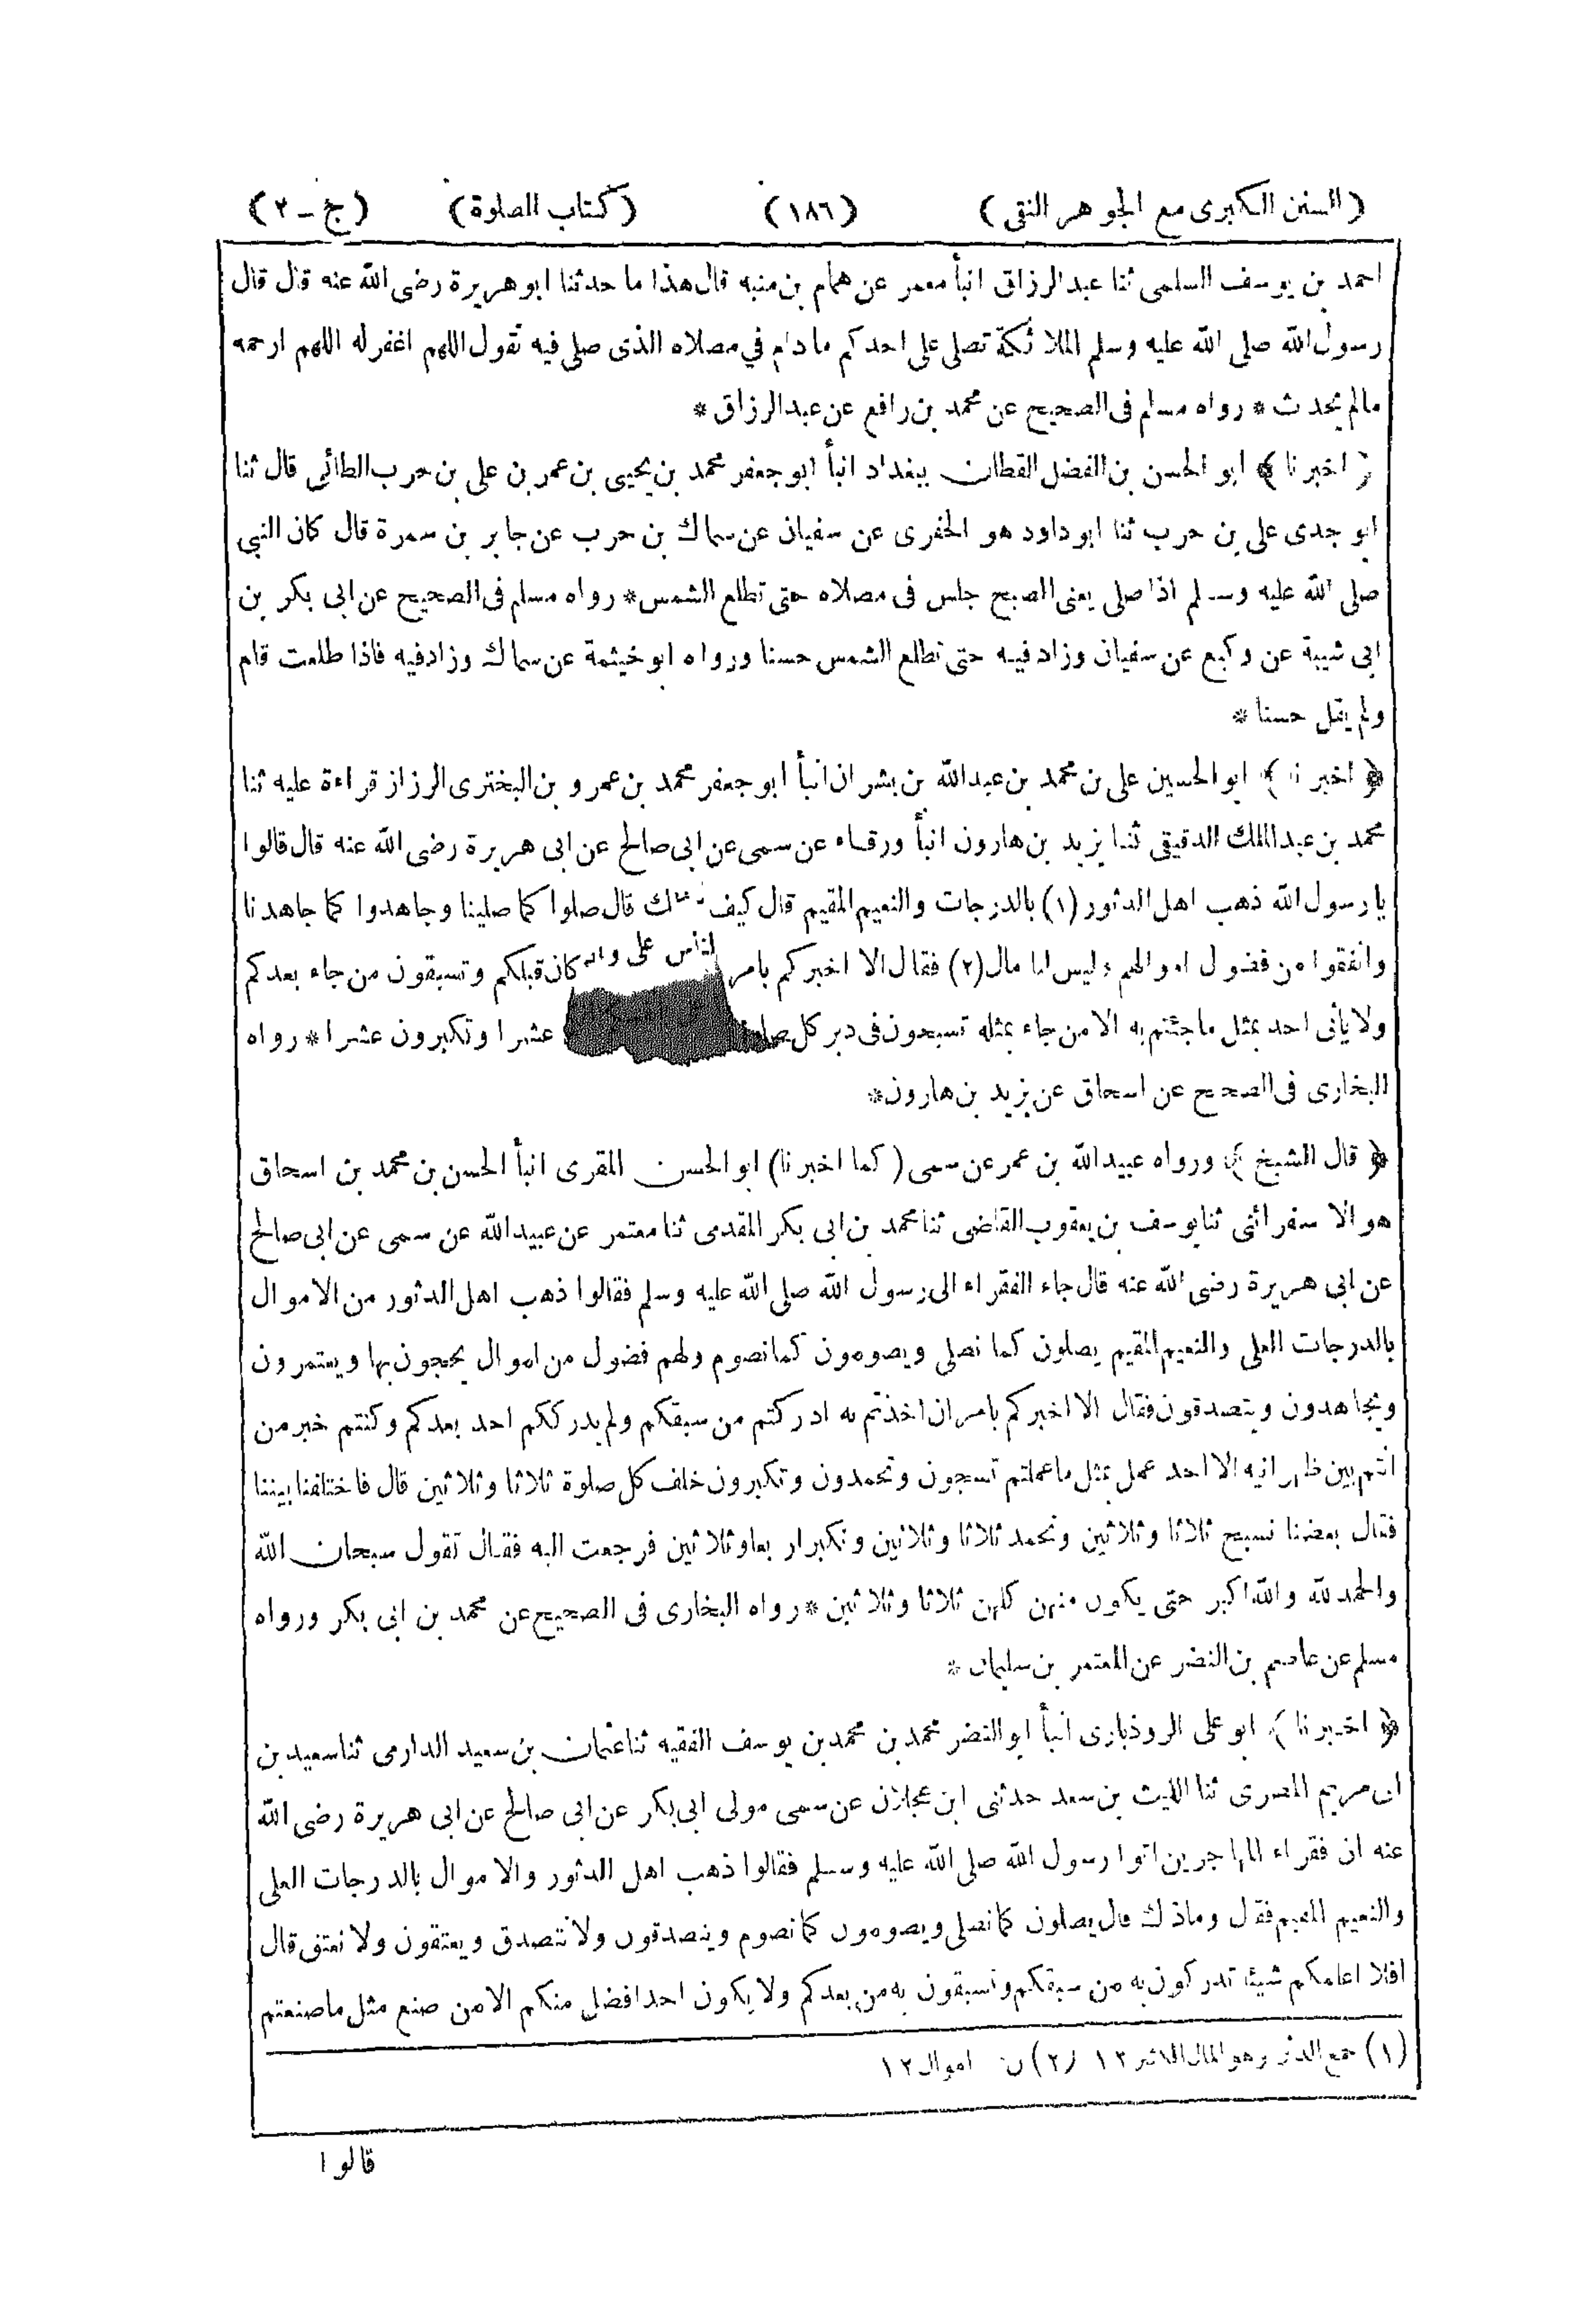 (السنن الكبرى مع الجوهر النقى) (١٨٦) (كتاب الصلوة) (ج - ٢)
احمد بن يوسف السلمى ثنا عبد الرزاق انبأ معمر عن همام بن منبه قال هذا ما حدثنا ابو هريرة رضى الله عنه قال قال
رسول الله صلى الله عليه وسلم الملائكة تصلى على احدكم ما دام في مصلاه الذى صلى فيه تقول اللهم اغفر له اللهم ارحمه
مالم يحدث * رواه مسلم فى الصحيح عن محمد بن رافع عن عبد الرزاق *
﴿ اخبرنا ﴾ ابو الحسن بن الفضل القطان ببغداد انبأ ابو جعفر محمد بن يحيى بن عمر بن على بن حرب الطائى قال ثنا
ابو جدى على بن حرب ثنا ابو داود هو الحفرى عن سفيان عن سماك بن حرب عن جابر بن سمرة قال كان النبي
صلى الله عليه وسلم اذا صلى يعنى الصبح جلس فى مصلاه حتى تطلع الشمس * رواه مسلم فى الصحيح عن ابى بكر بن
ابى شيبة عن وكيع عن سفيان وزاد فيه حتى تطلع الشمس حسنا ورواه ابو خيثمة عن سماك وزاد فيه فاذا طلعت قام
ولم يقل حسنا *
﴿ اخبرنا ﴾ ابو الحسين على بن محمد بن عبد الله بن بشران انبأ ابو جعفر محمد بن عمرو بن البخترى الرزاز قراءة عليه ثنا
محمد بن عبد الملك الدقيقى ثنا يزيد بن هارون انبأ ورقاء عن سمى عن ابى صالح عن ابى هريرة رضى الله عنه قال قالوا
يا رسول الله ذهب اهل الدثور (١) بالدرجات والنعيم المقيم قال كيف قال صلوا كما صلينا وجاهدوا كما جاهدنا
وانفقوا من فضول اموالهم وليس لنا مال (٢) فقال الا اخبركم بامر كان قبلكم وتسبقون من جاء بعدكم
ولا يأتى احد بمثل ما جئتم به الا من جاء بمثله تسبحون فى دبر كل عشرا وتكبرون عشرا * رواه
البخارى فى الصحيح عن اسحاق عن يزيد بن هارون *
﴿ قال الشيخ ﴾ ورواه عبيد الله بن عمر عن سمى (كما اخبرنا) ابو الحسن المقرى انبأ الحسن بن محمد بن اسحاق
هو الاسفرائنى ثنا يوسف بن يعقوب القاضى ثنا محمد بن ابى بكر المقدمى ثنا معتمر عن عبيد الله عن سمى عن ابى صالح
عن ابى هريرة رضى الله عنه قال جاء الفقراء الى رسول الله صلى الله عليه وسلم فقالوا ذهب اهل الدثور من الاموال
بالدرجات العلى والنعيم المقيم يصلون كما نصلى ويصومون كما نصوم ولهم فضول من اموال يحجون بها ويعتمرون
ويجاهدون ويتصدقون فقال الا اخبركم بامر ان اخذتم به ادركتم من سبقكم ولم يدرككم احد بعدكم وكنتم خير من
انتم بين ظهرانيه الا احد عمل بمثل ما عملتم تسبحون وتحمدون وتكبرون خلف كل صلوة ثلاثا وثلاثين قال فاختلفنا بيننا
فقال بعضنا نسبح ثلاثا وثلاثين ونحمد ثلاثا وثلاثين ونكبر اربعا وثلاثين فرجعت اليه فقال تقول سبحان الله
والحمد لله والله اكبر حتى يكون منهن كلهن ثلاثا وثلاثين * رواه البخارى فى الصحيح عن محمد بن ابى بكر ورواه
مسلم عن عاصم بن النضر عن المعتمر بن سليمان *
﴿ اخبرنا ﴾ ابو على الروذبارى انبأ ابو النضر محمد بن محمد بن يوسف الفقيه ثنا عثمان بن سعيد الدارمى ثنا سعيد بن
ابى مريم المصرى ثنا الليث بن سعد حدثنى ابن عجلان عن سمى مولى ابى بكر عن ابى صالح عن ابى هريرة رضى الله
عنه ان فقراء المهاجرين اتوا رسول الله صلى الله عليه وسلم فقالوا ذهب اهل الدثور والاموال بالدرجات العلى
والنعيم المقيم فقال وما ذلك قال يصلون كما نصلى ويصومون كما نصوم ويتصدقون ولا نتصدق ويعتقون ولا نعتق قال
افلا اعلمكم شيئا تدركون به من سبقكم وتسبقون به من بعدكم ولا يكون احد افضل منكم الا من صنع مثل ما صنعتم
(١) جمع الدثر وهو المال الكثير ١٢ (٢) ن اموال ١٢
قالوا